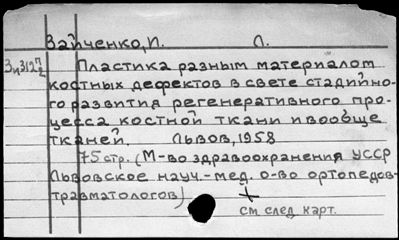 Зайченко, П. Л.
Пластика разным материалом
костных дефектов в свете стадийно-
го развития регенеративного про-
цесса костной ткани и вообще
тканей. Львов, 1958
75 стр. (М-во здравоохранения УССР
Львовское науч.-мед. о-во ортопедов-
травматологов)
см след. карт.